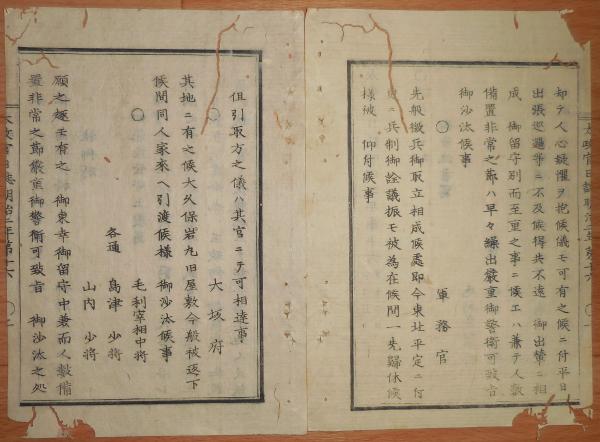 却テ人心疑懼ヲ抱候儀モ可有之候ニ付平日
出張巡邏等ニ不及候得共不遠 御出輦ニ相
成 御留守別而至重之事ニ候エハ兼テ人数
備置非常之節ハ早々繰出厳重御警衛可致旨
御沙汰候事
○ 軍務官
先般徴兵御取立相成候處即今東北平定ニ付
更ニ兵制御詮議振モ被為在候間一先歸休候
様被 仰付候事
太政官日誌明治二年第十六 ○一
但引取方之儀ハ其官ニテ可相達事
○ 大坂府
其地ニ有之候大久保岩丸旧屋敷今般被返下
候間同人家来ヘ引渡候様 御沙汰候事
○ 毛利宰相中将
各通 島津 少将
山内 少将
願之趣モ有之 御東幸御留守中兼而人数備
置非常之節嚴重御警衛可致旨 御沙汰之処
太政官日誌明治二年第十六 ○二